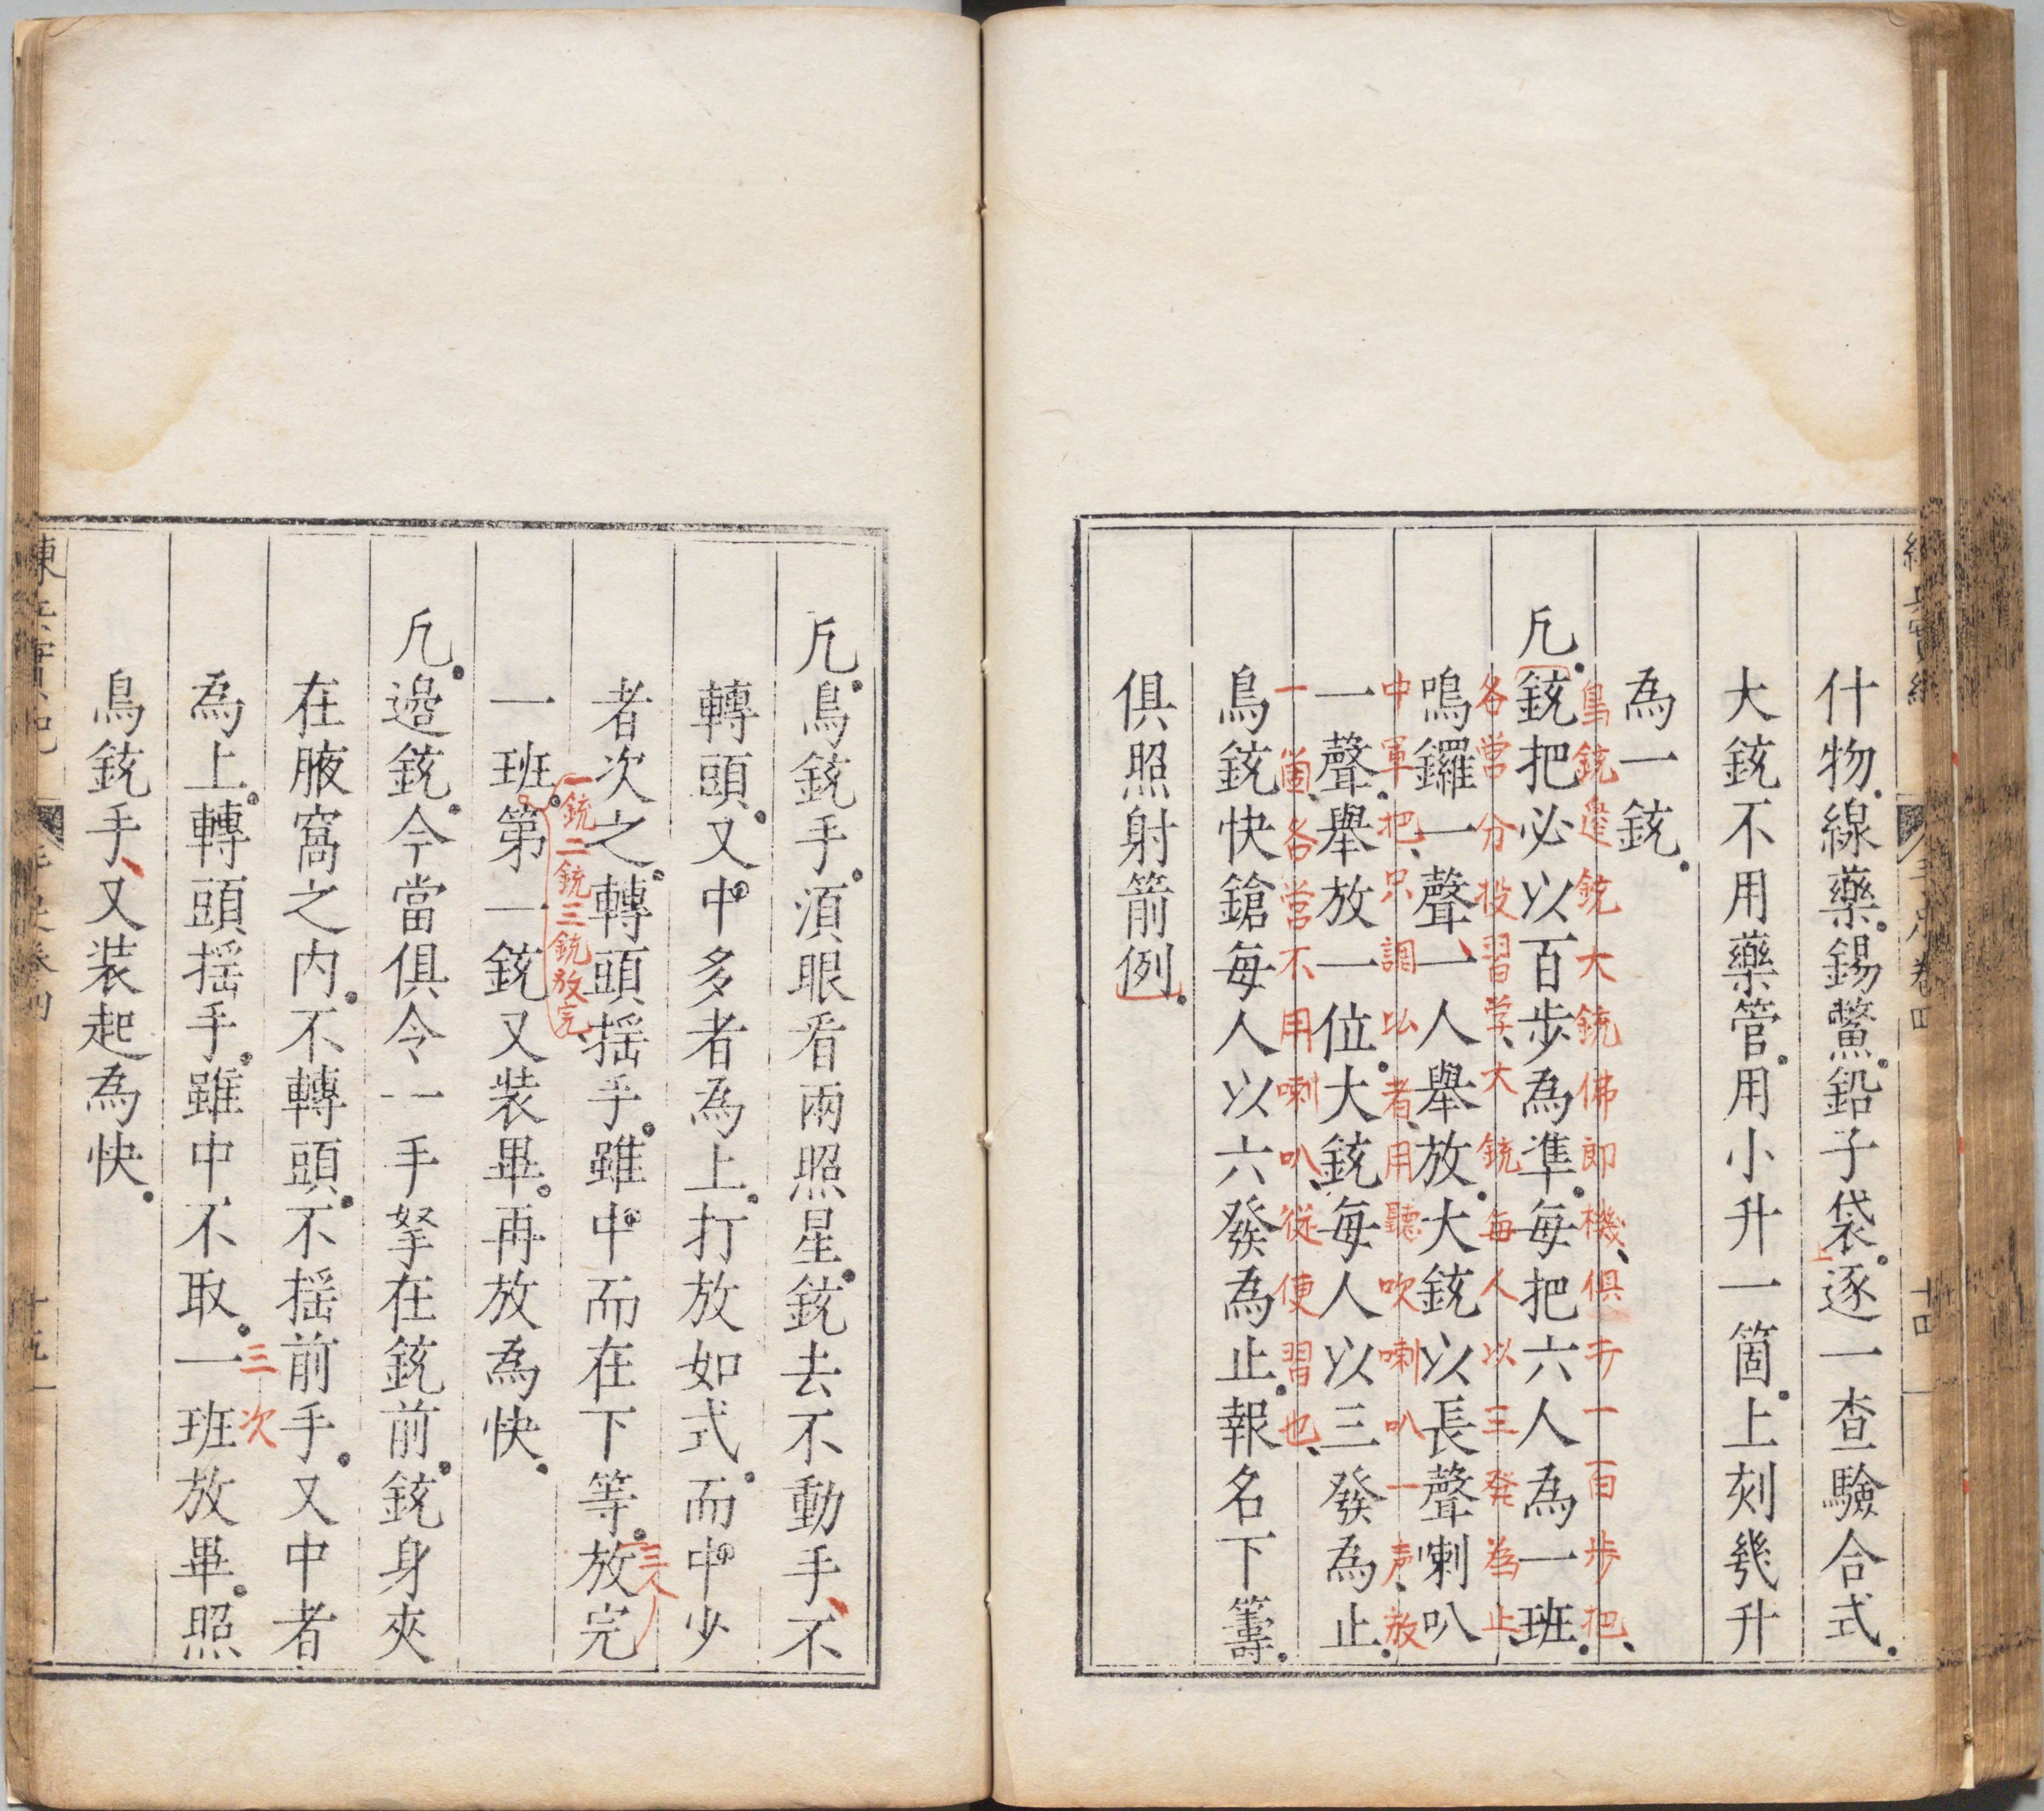 什物線藥錫鱉鉛子袋逐一查驗合式
上
大銃不用藥管用小升一箇上刻幾升
為一銃
鳥銃邊銃大銃佛郎機俱于一百步把
凡銃把必以百步為準每把六人為一班
各營分投習学大銃每人以三發為止
鳴鑼一聲一人舉放大銃以長聲喇叭
中軍把只調以者用聽吹喇叭一声放
一聲舉放一位大銃每人以三發為止
一箇各營不用喇叭從便習也
鳥銃快鎗每人以六發為止報名下籌
俱照射箭例
卷四
十四
凡鳥銃手須眼看兩照星銃去不動手不
轉頭又中多者為上打放如式而中少
三人
者次之轉頭揺手雖中而在下等放完
一銃二銃三銃放完
一班第一銃又装畢再放為快
凡邉銃今當俱令一手拏在銃前銃身夾
在腋窩之内不轉頭不揺前手又中者
三次
為上轉頭揺手雖中不取一班放畢照
鳥銃手又装起為快